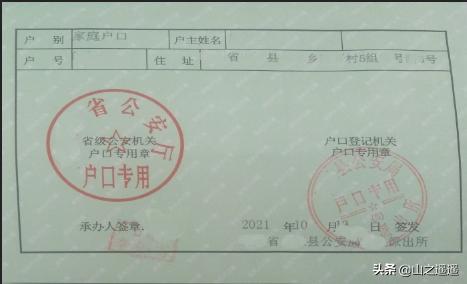 户 别 家庭户口 户主姓名
户 号 住 址 省 县 乡 村5组 号 号
省公安厅
户口专用
省级公安机关
户口专用章
户口登记机关
户口专用章
县公安局
户口专用
承办人签章.
2021 年10 月 日 签发
县公安局 派出所
头条 @山之遥遥